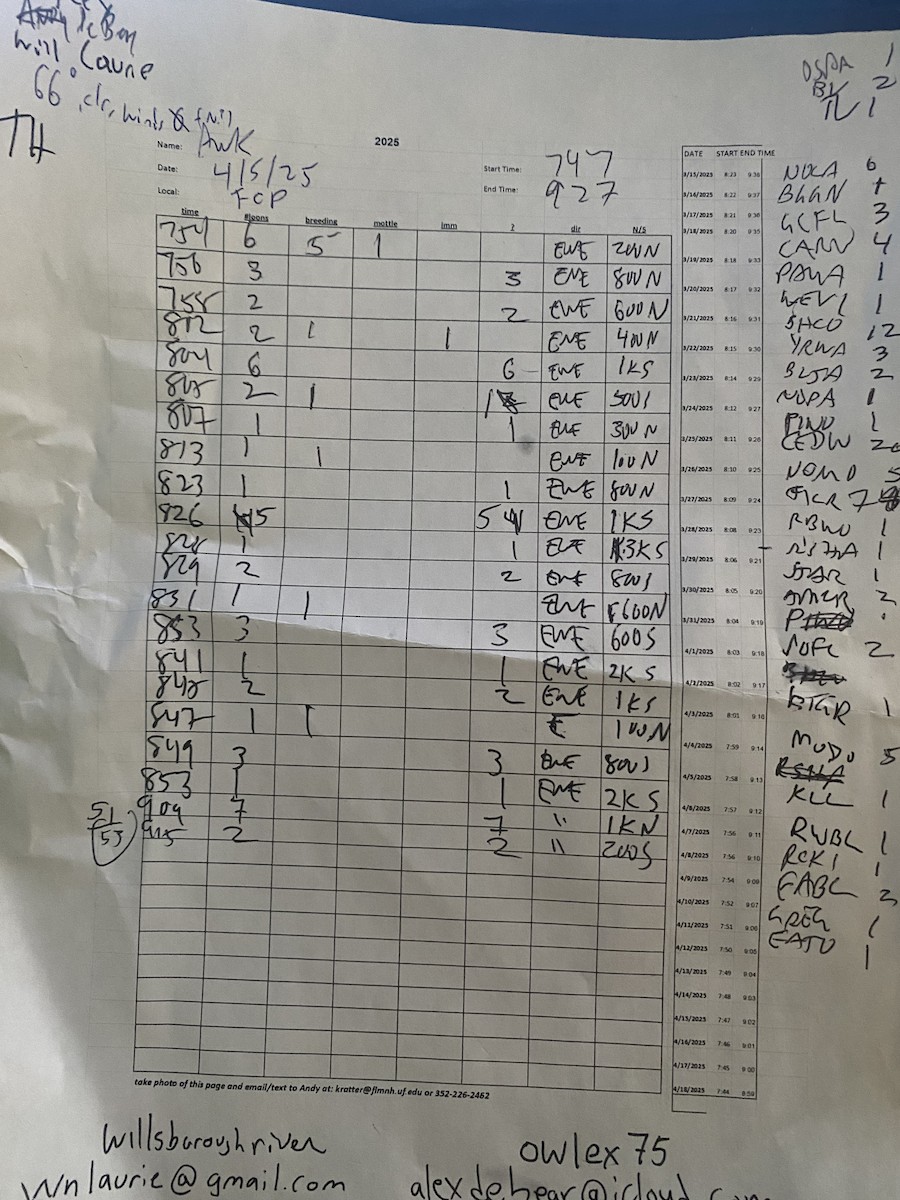 Will Laurie
66° clr, winds
TH
2025
Name: AWK
Date: 4/5/25
Local: FCP
Start Time: 747
End Time: 927
time #loons breeding mottle imm ? dir N/S
754 6 5 1 ENE 200N
756 3 3 ENE 800N
758 2 2 ENE 600N
802 2 1 1 ENE 400N
804 6 6 ENE 1KS
805 2 1 1 ENE 500S
807 1 1 ENE 300N
813 1 1 ENE 100N
823 1 1 ENE 800N
826 5 5 ENE 1KS
828 1 1 ENE 3KS
829 2 2 ENE 800S
831 1 1 ENE 600N
853 3 3 ENE 600S
841 1 1 ENE 2KS
845 2 2 ENE 1KS
847 1 1 E 100N
849 3 3 ENE 800S
853 1 1 ENE 2KS
909 7 7 " 1KN
915 2 2 " 200S
51/53
take photo of this page and email/text to Andy at: kratter@flmnh.uf.edu or 352-226-2462
DATE START END TIME
3/13/2025 8:23 9:38
3/14/2025 8:22 9:37
3/17/2025 8:21 9:36
3/18/2025 8:20 9:35
3/19/2025 8:18 9:33
3/20/2025 8:17 9:32
3/21/2025 8:16 9:31
3/22/2025 8:15 9:30
3/23/2025 8:14 9:29
3/24/2025 8:12 9:27
3/25/2025 8:11 9:26
3/26/2025 8:10 9:25
3/27/2025 8:09 9:24
3/28/2025 8:08 9:23
3/29/2025 8:06 9:21
3/30/2025 8:05 9:20
3/31/2025 8:04 9:19
4/1/2025 8:03 9:18
4/2/2025 8:02 9:17
4/3/2025 8:01 9:16
4/4/2025 7:59 9:14
4/5/2025 7:58 9:13
4/6/2025 7:57 9:12
4/7/2025 7:56 9:11
4/8/2025 7:56 9:10
4/9/2025 7:54 9:09
4/10/2025 7:52 9:07
4/11/2025 7:51 9:06
4/12/2025 7:50 9:05
4/13/2025 7:49 9:04
4/14/2025 7:48 9:03
4/15/2025 7:47 9:02
4/16/2025 7:46 9:01
4/17/2025 7:45 9:00
4/18/2025 7:44 8:59
BV 2
TV 1
NOCA 6
BGGN +
GCFL 3
CARW 4
PAWA 1
WEVI 1
SHCO 12
YRWA 3
BLJA 2
NOPA 1
CEDW
NOMO 5
FICR 7
RBWO 1
STAR 1
AMCR 2
NOFL 2
BTGR 1
MODO 5
KILL 1
RWBL 1
RCKI 1
EABL 2
GREG 1
EATO 1
willsboroughriver
wnlaurie@gmail.com
owlex75